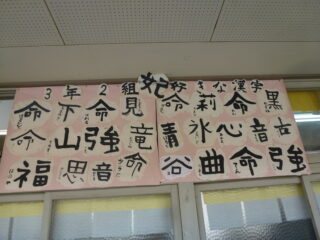 3年2組 好きな漢字
命 下 命 見 妃 命 莉 命 黒
命 山 強 竜 青 氷 心 音 女
福 思 音 命 谷 曲 命 強